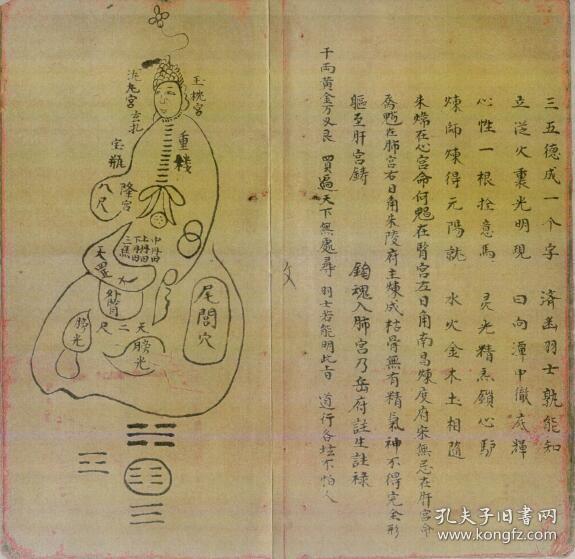 三五德成一个字　済幽羽士孰能知
立從火裏光明現　日向潭中徹底輝
心性一根拴意馬　灵光精炁鎖心馿
煉師煉得元陽就　水火金木土相隨
朱爍在心宮命何魁在腎宮左日角南昌煉度府宋無忌在肝宮命
喬魁在肺宮右日角朱陵府主煉成枯骨無有精氣神不得完全形
軀至肝宮鑄　鈎魂入肺宮乃岳府註生註禄
千両黄金万又艮　買遍天下無處尋　羽士若能明此旨　道行各坛不怕人
玉枕宮
泥丸宮
玄扎
重楼
宝瓶
隆宮
八尺
中丹田
上丹田
下丹田
三焦
天罡
外腎
天二尺
膀光
膀光
尾閭穴
孔夫子旧书网
www.kongfz.com